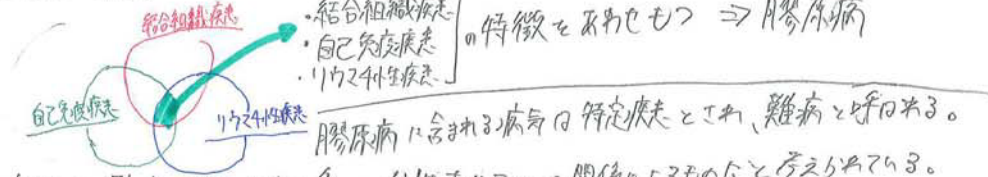 結合組織疾患
自己免疫疾患
リウマチ性疾患
・結合組織疾患
・自己免疫疾患
・リウマチ性疾患
の特徴をあわせもつ ⇒ 膠原病
膠原病に含まれる病気は特定疾患とされ、難病と呼ばれる。
関係によるものだと考えられている。